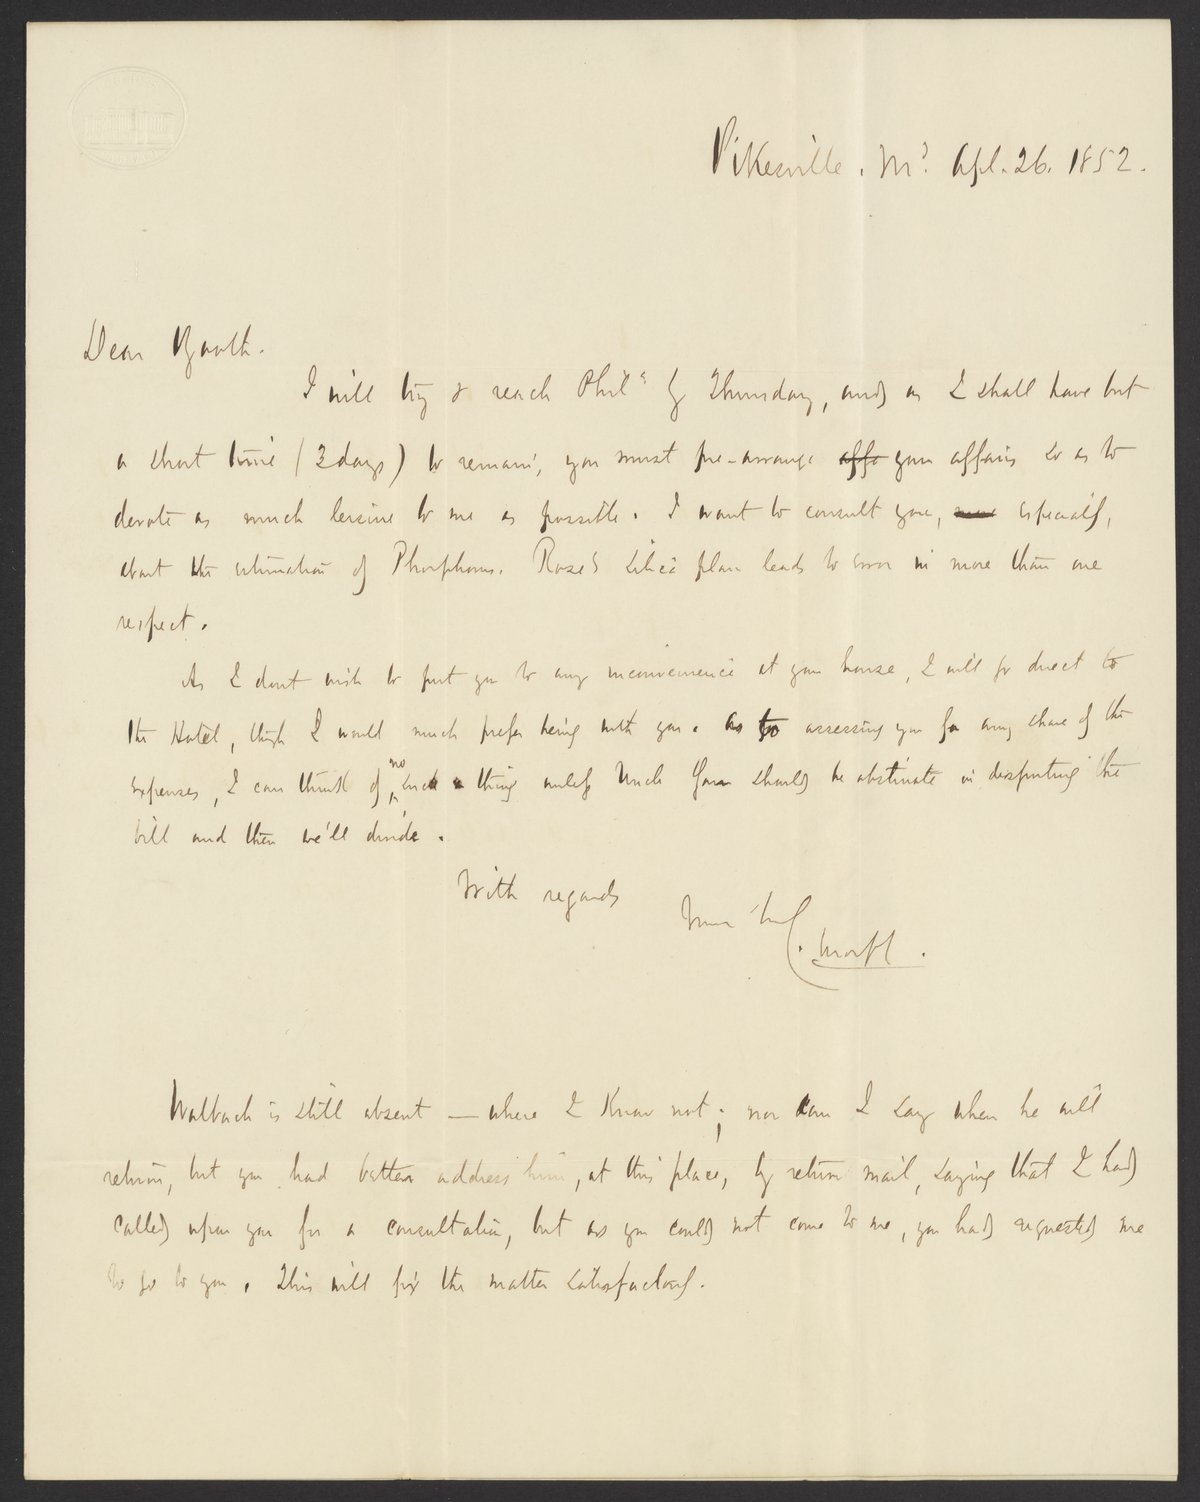 Pikesville. Md. Apl. 26. 1852.
Dear Booth.
I will try & reach Phila by Thursday, and as I shall have but
a short time (3 days) to remain, you must pre-arrange affa your affairs so as to
devote as much leisure to me as possible. I want to consult you, especially,
about the estimation of Phosphorus. Rose's Silica plan leads to error in more than one
respect.
As I dont wish to put you to any inconvenience at your house, I will go direct to
the Hotel, though I would much prefer being with you. As to assessing you for any share of the
expenses, I can think of no such a thing unless Uncle Sam should be obstinate in disputing the
bill and then we'll divide.
With regards
Yours truly
C. Morfit.
Walbach is still absent — where I Know not; nor can I say when he will
return, but you had better address him, at this place, by return mail, saying that I had
called upon you for a consultation, but as you could not come to me, you had requested me
to go to you. This will fix the matter satisfactorily.